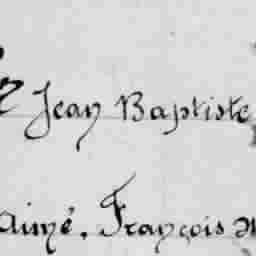 Jean Baptiste
Aimé. François